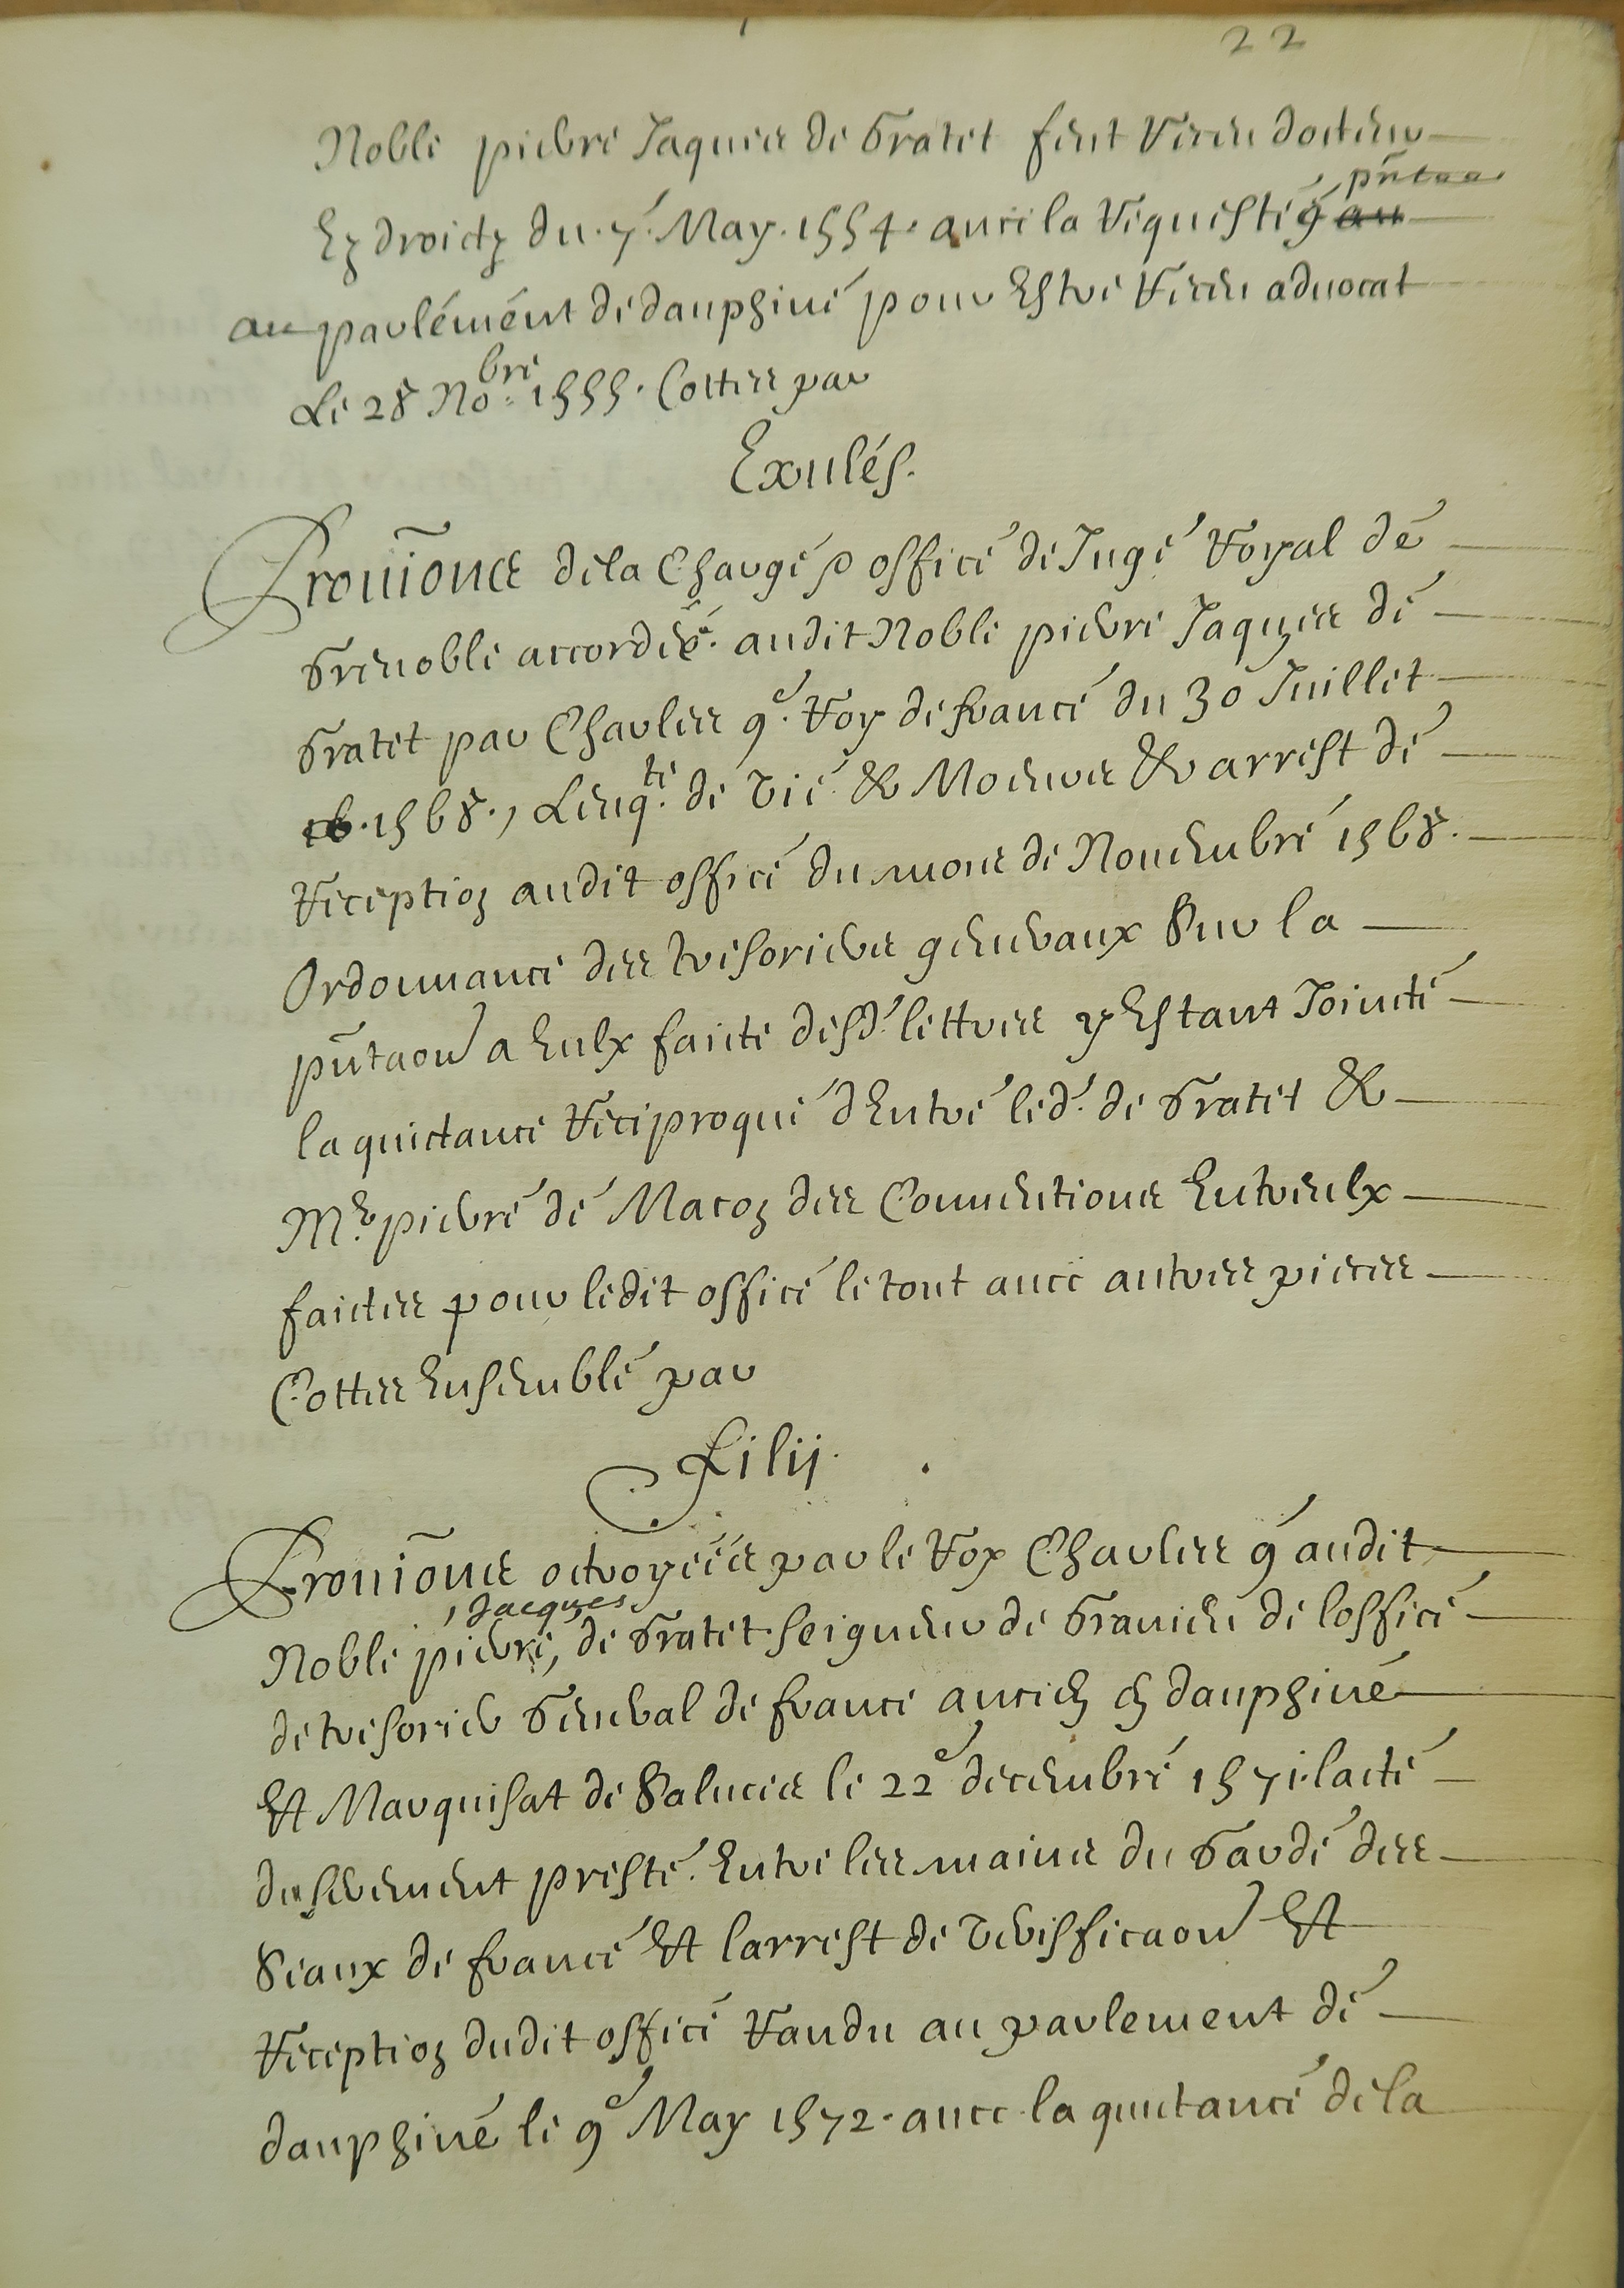 22
Noble pierre Jaques de Gratet feut Receu docteur
Ez droictz du 7e May 1554. auec la Requeste pñtee
au parlement de dauphiné pour Estre Receu aduocat
Le 28 Nobre 1555. Cottees par
Exules.
Prouiõns de la Charge & office de Juge Royal de
Grenoble accordées audit Noble pierre Jaques de
Gratet par Charles 9e. Roy de france du 30 Juillet
1568., Lenqte. de vie & Moeurs & arrest de
Reception audit office du mois de Nouembre 1568.
Ordonnance des tresoriers generaux Sur la
pñtaon a Eulx faicte desd. lettres y Estant Joincte
la quictance Reciproque dEntre led. de Gratet &
Mr. pierre de Macon des Conuentions Entreulx
faictes pour ledit office le tout auec autres pieces
Cottees Ensemble par
Filij.
Prouiõns octroyéés par le Roy Charles 9 audit
Noble pierre, Jacques de Gratet Seigneur de Granieu de loffice
de tresorier General de france ancien en dauphiné
Et Marquisat de Saluces le 22e decembre 1571. lacte
du serement presté Entre les mains du Garde des
Seaux de france Et larrest de veriffication Et
Reception dudit office Randu au parlement de
dauphiné le 9e May 1572. auec la quictance de la